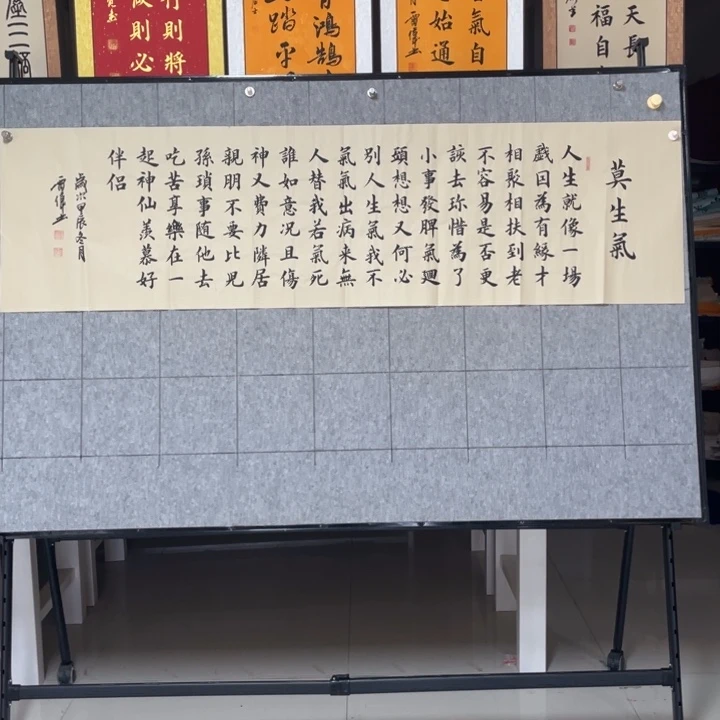 天長
福自
氣自
始通
鴻鵠
踏平
則將
則必
莫生氣
人生就像一場
戲因為有緣才
相聚相扶到老
不容易是否更
該去珎惜為了
小事發脾氣迴
頭想想又何必
別人生氣我不
氣氣出病来無
人替我若氣死
誰如意况且傷
神又費力隣居
親朋不要比児
孫瑣事随他去
吃苦享樂在一
起神仙羨慕好
伴侶
歲次甲辰冬月